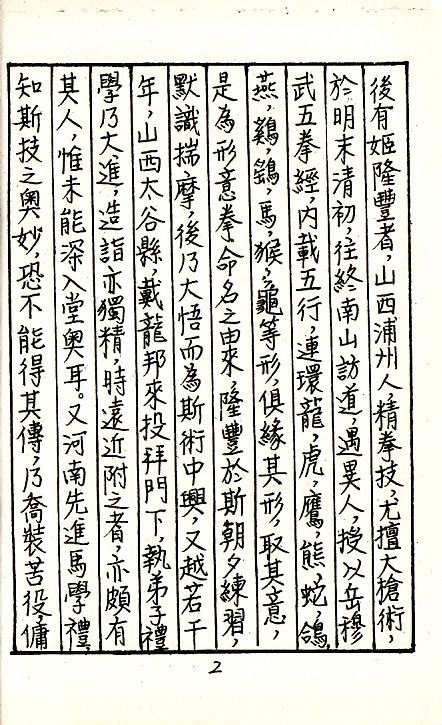 後有姬隆豐者，山西浦州人，精拳技，尤擅大槍術，
於明末清初，往終南山訪道，遇異人，授以岳穆
武五拳經，內載五行，連環龍，虎，鷹，熊，蛇，鴿，
燕，鷄，鷂，馬，猴，龜等形，俱緣其形，取其意，
是為形意拳命名之由來，隆豐於斯朝夕練習，
默識揣摩，後乃大悟而為斯術中興，又越若干
年，山西太谷縣，戴龍邦來投拜門下，執弟子禮
學乃大進，造詣亦獨精，時遠近附之者，亦頗有
其人，惟未能深入堂奧耳。又河南先進馬學禮，
知斯技之奧妙，恐不能得其傳，乃喬裝苦役，傭
2